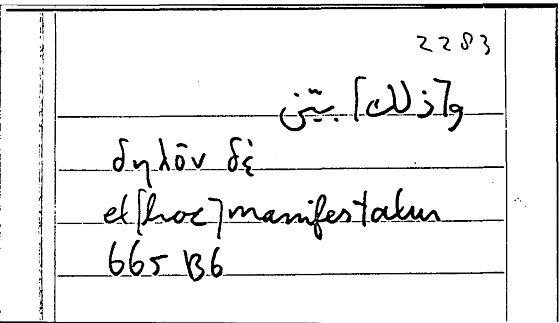 2283
و[ذلك] بيّن
δηλōν δέ
et [hoc] manifestatur
665 B6